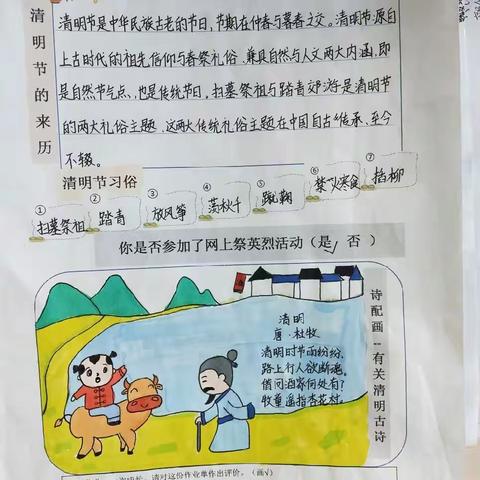 清明节的来历
清明节是中华民族古老的节日,节期在仲春与暮春之交。清明节源自
上古时代的祖先信仰与春祭礼俗,兼具自然与人文两大内涵,即
是自然节气点,也是传统节日,扫墓祭祖与踏青郊游是清明节
的两大礼俗主题,这两大传统礼俗主题在中国自古传承,至今
不辍。
清明节习俗
①扫墓祭祖
②踏青
③放风筝
④荡秋千
⑤蹴鞠
⑥禁火寒食
⑦插柳
你是否参加了网上祭英烈活动(是√ 否 )
清明
唐·杜牧
清明时节雨纷纷,
路上行人欲断魂。
借问酒家何处有?
牧童遥指杏花村。
诗配画--有关清明古诗
请对这份作业单作出评价。(画√)